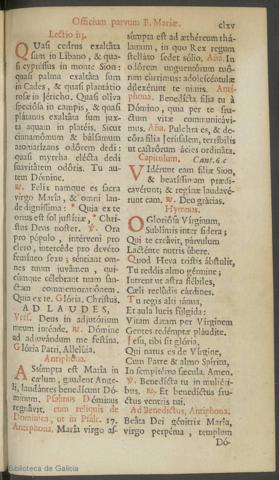 Officium parvum B. Mariæ. clxv
Lectio iij.
QUasi cedrus exaltáta
sum in Líbano, & qua-
si cypréssus in monte Sion:
quasi palma exaltáta sum
in Cades, & quasi plantátio
rosæ in Jéricho. Quasi olíva
speciósa in campis, & quasi
plátanus exaltáta sum jux-
ta aquam in platéis. Sicut
cinnamómum & bálsamum
aromatízans odórem dedi:
quasi myrrha elécta dedi
suavitátem odóris. Tu au-
tem Dómine.
℟. Felix namque es sacra
virgo María, & omni lau-
de digníssima: * Quia ex te
ortus est sol justítiæ, * Chri-
stus Deus noster. ℣. Ora
pro pópulo, intérveni pro
clero, intercéde pro devóto
femíneo sexu; séntiant om-
nes tuum juvámen, qui-
cúmque célebrant tuam san-
ctam commemoratiónem.
Quia ex te. Glória. Christus.
AD LAUDES,
Vers. Deus in adjutórium
meum inténde. ℟. Dómine
ad adjuvándum me festína.
Glória Patri, Allelúia.
Antiphona.
ASsúmpta est María in
cælum, gaudent Ange-
li, laudántes benedícunt Dó-
minum. Psalmus Dóminus
regnávit. cum reliquis de
Dominica, ut in Psalt. 17.
Antiphona. María virgo as-
súmpta est ad æthéreum thá-
lamum, in quo Rex regum
stelláto sedet sólio. Ana. In
odórem unguentórum tuó-
rum cúrrimus: adolescéntulæ
dilexérunt te nimis. Anti-
phona. Benedícta fília tu à
Dómino, quia per te fru-
ctum vitæ communicávi-
mus. Aña. Pulchra es, & de-
córa fília Jerúsalem, terríbilis
ut castrórum ácies ordináta.
Capitulum. Cant. 6. c
VIdérunt eam fíliæ Sion,
& beatíssimam prædi-
cavérunt; & regínæ laudavé-
runt eam. ℟. Deo grátias.
Hymnus.
OGloriósa Vírginum,
Sublímis inter sídera;
Qui te creávit, párvulum
Lacténte nutris úbere.
Quod Heva tristis ábstulit,
Tu reddis almo gérmine;
Intrent ut astra flébiles,
Cæli reclúdis cárdines.
Tu regis alti jánua,
Et aula lucis fúlgida:
Vitam datam per Vírginem
Gentes redémptæ pláudite.
Jesu, tibi sit glória,
Qui natus es de Vírgine,
Cum Patre & almo Spíritu,
In sempitérna sǽcula. Amen.
℣. Benedícta tu in muliéri-
bus. ℟. Et benedíctus fru-
ctus ventris tui.
Ad Benedictus, Antiphona.
Beáta Dei génitrix María,
virgo perpétua, templum
Dó-
Biblioteca de Galicia